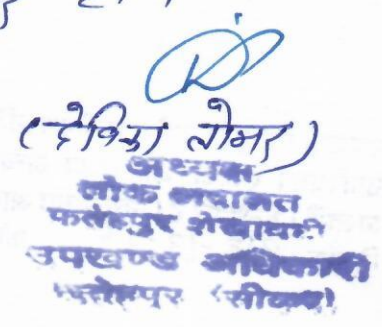 (देविका तोमर)
अध्यक्ष
लोक अदालत
फतेहपुर शेखावटी
उपखण्ड अधिकारी
फतेहपुर (सीकर)